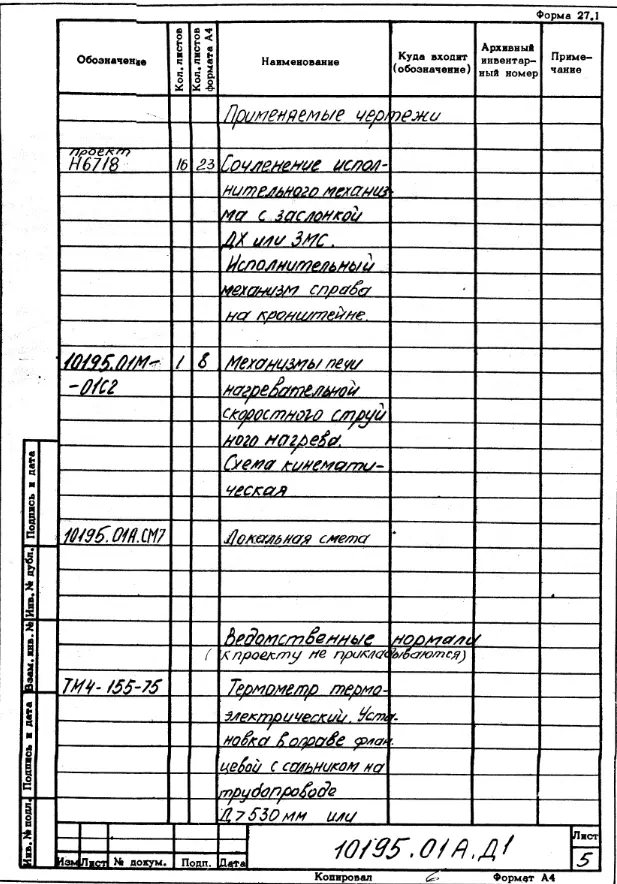 Форма 27.1
Обозначение
Кол. листов
Кол. листов формата А4
Наименование
Куда входит (обозначение)
Архивный инвентарный номер
Примечание
Применяемые чертежи
проект
Н6718 16 23 Сочленение испол-
нительного механиз-
ма с заслонкой
ДХ или ЗМС.
Исполнительный
механизм справа
на кронштейне.
10195.01М- 1 8 Механизмы печи
-01С2 нагревательной
скоростного струй
ного нагрева.
Схема кинемати-
ческая
10195.01А.СМ7 Локальная смета
Ведомственные нормали
(к проекту не прикладываются)
ТМ4-155-75 Термометр термо-
электрический. Уста-
новка в оправе флан
цевой с сальником на
трубопроводе
Д>530мм или
Инв.№ подл. Подпись и дата Взам. инв. № Инв. № дубл. Подпись и дата
Изм Лист № докум. Подп. Дата
10195.01А.Д1
Лист
5
Копировал Формат А4